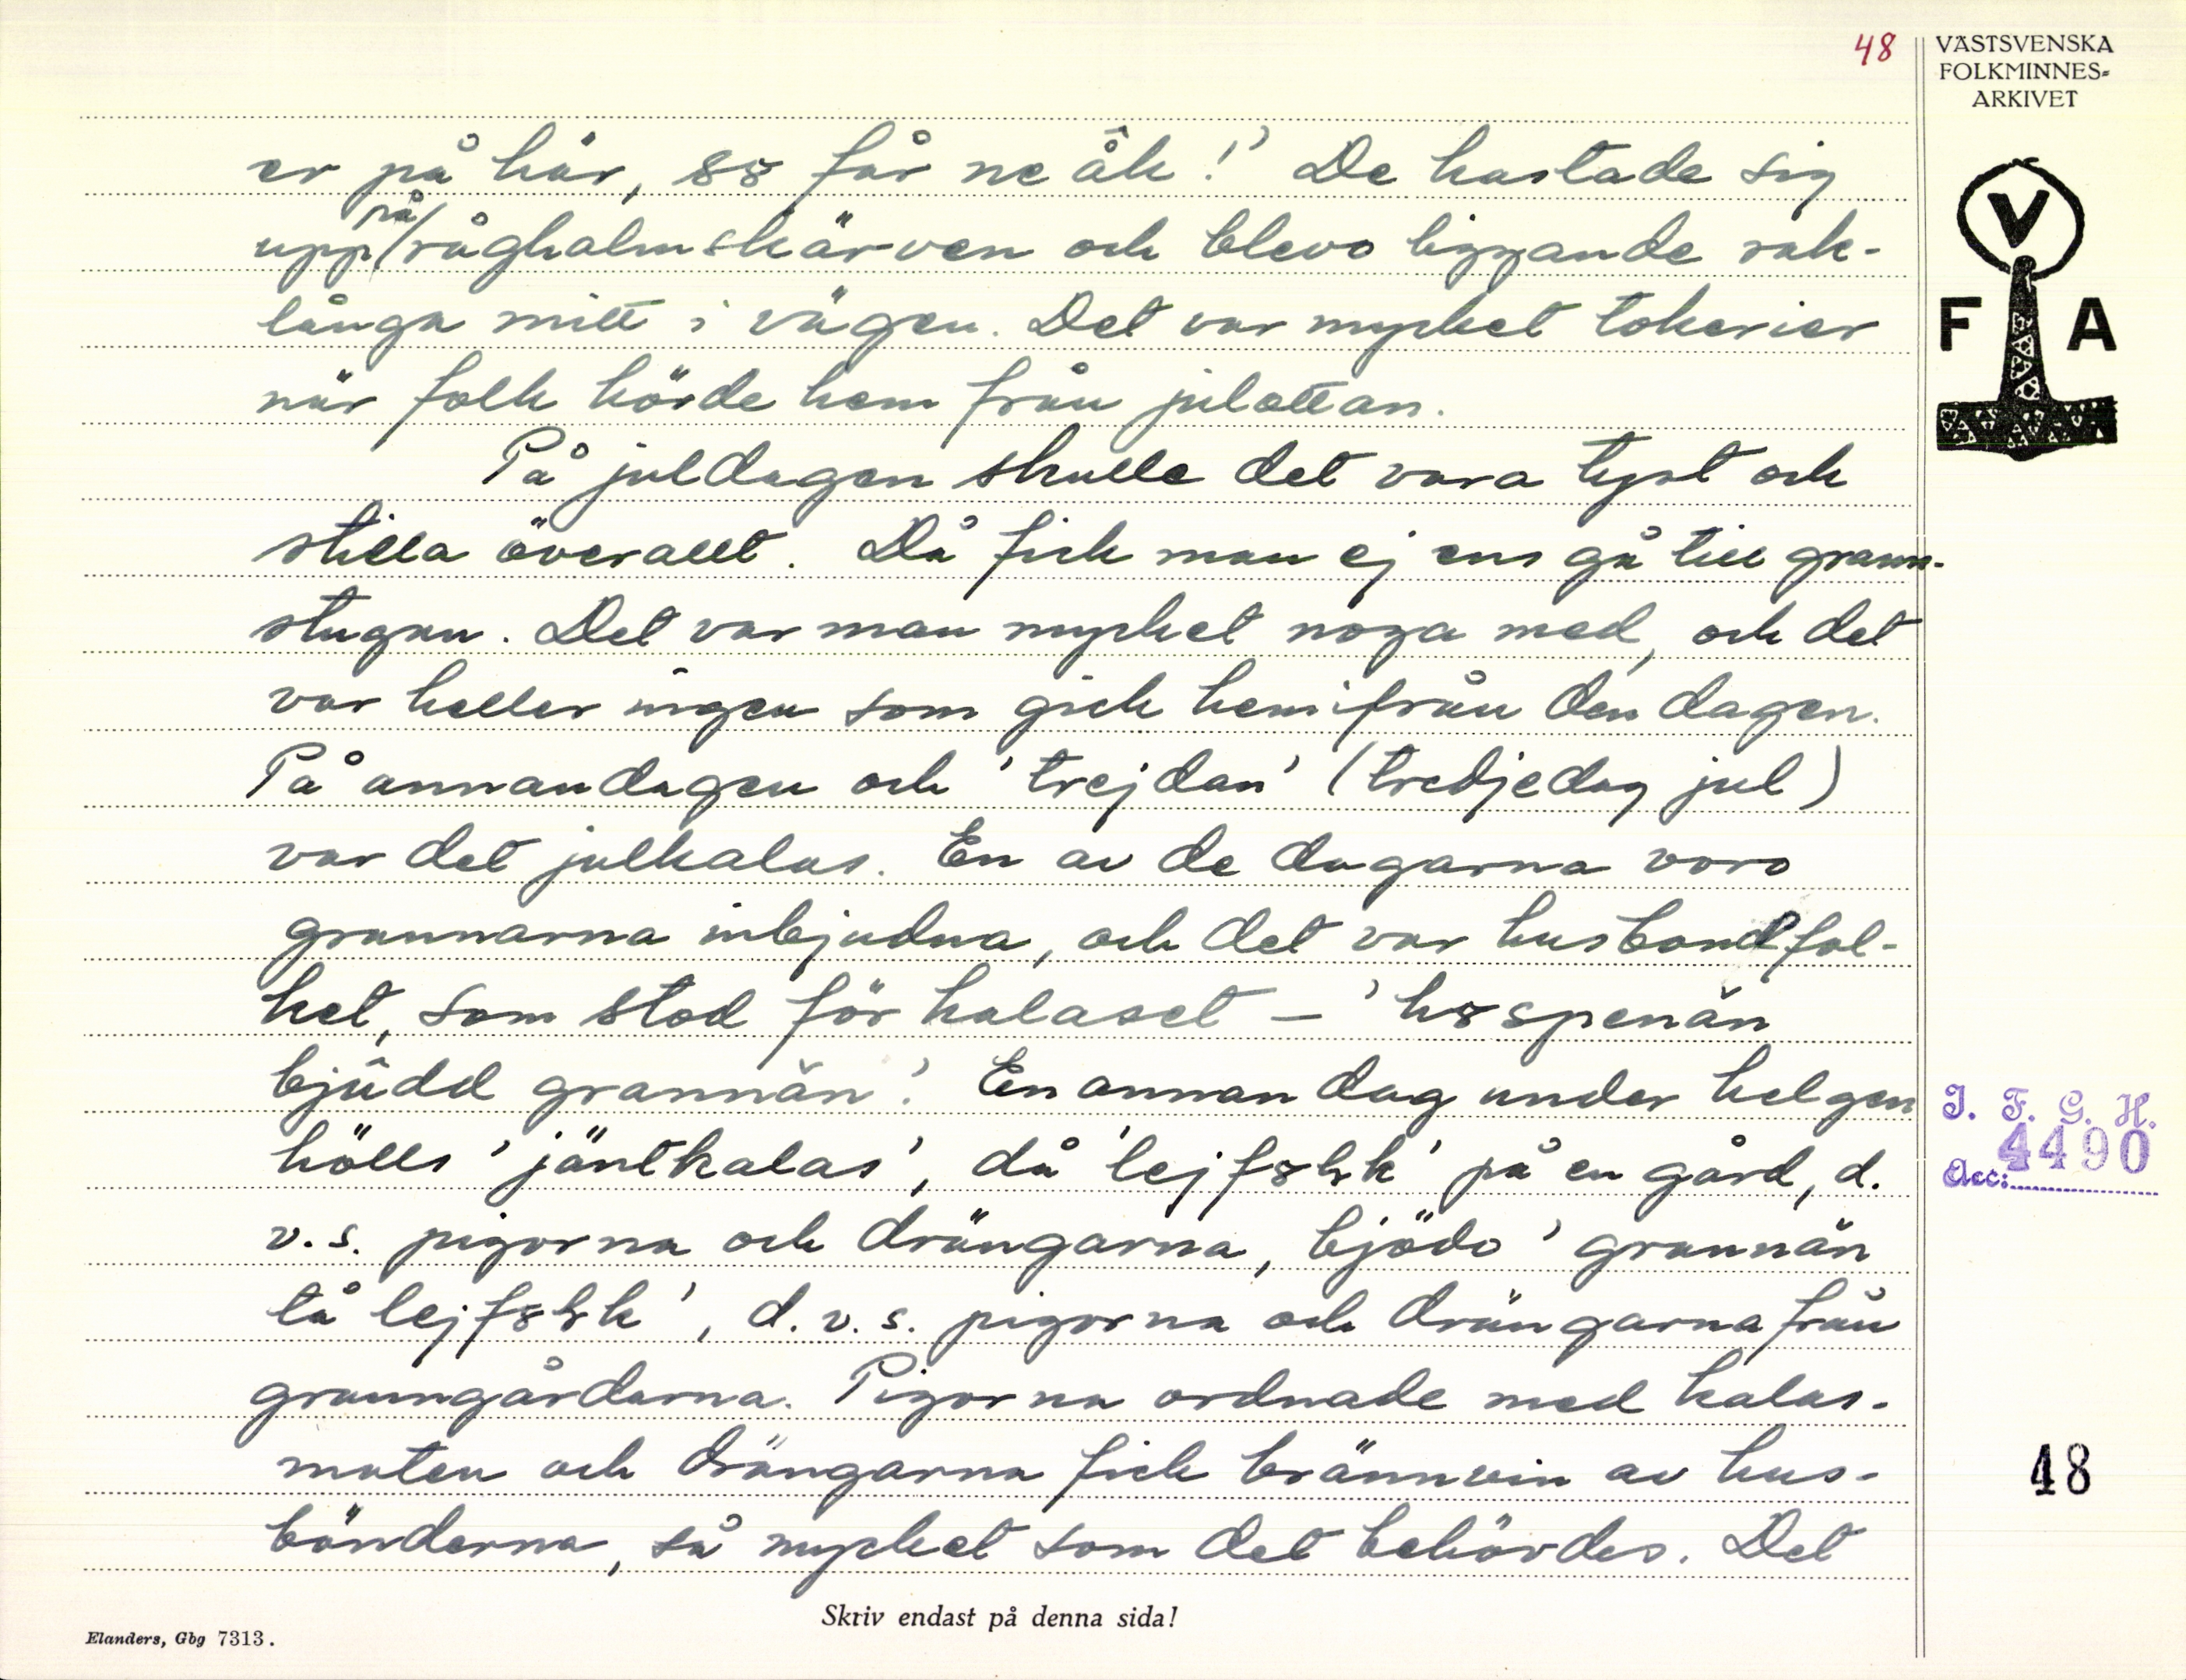 48
VÄSTSVENSKA
FOLKMINNES-
ARKIVET
V
F A
er på här, s8 får ne åk!' De kastade sig
upp på råghalmskärven och blevo liggande rak-
långa mitt i vägen. Det var mycket tokerier
när folk körde hem från julottan.
På juldagen skulle det vara tyst och
stilla överallt. Då fick man ej ens gå till grann-
stugan. Det var man mycket noga med, och det
var heller ingen som gick hemifrån den dagen.
På annandagen och 'trejdan' (tredjedag jul)
var det julkalas. En av de dagarna voro
grannarna inbjudna, och det var husbondfol-
ket, som stod för kalaset – 'h8spenän
bjûdd grannän'. En annan dag under helgen
hölls 'jäntkalas', då 'lejf8lk' på en gård, d.
v.s. pigorna och drängarna, bjödo 'grannän
tå lejf8lk', d.v.s. pigorna och drängarna från
granngårdarna. Pigorna ordnade med kalas-
maten och drängarna fick brännvin av hus-
bönderna, så mycket som det behövdes. Det
I. F. G. H.
Acc: 4490
48
Skriv endast på denna sida!
Elanders, Gbg 7313.